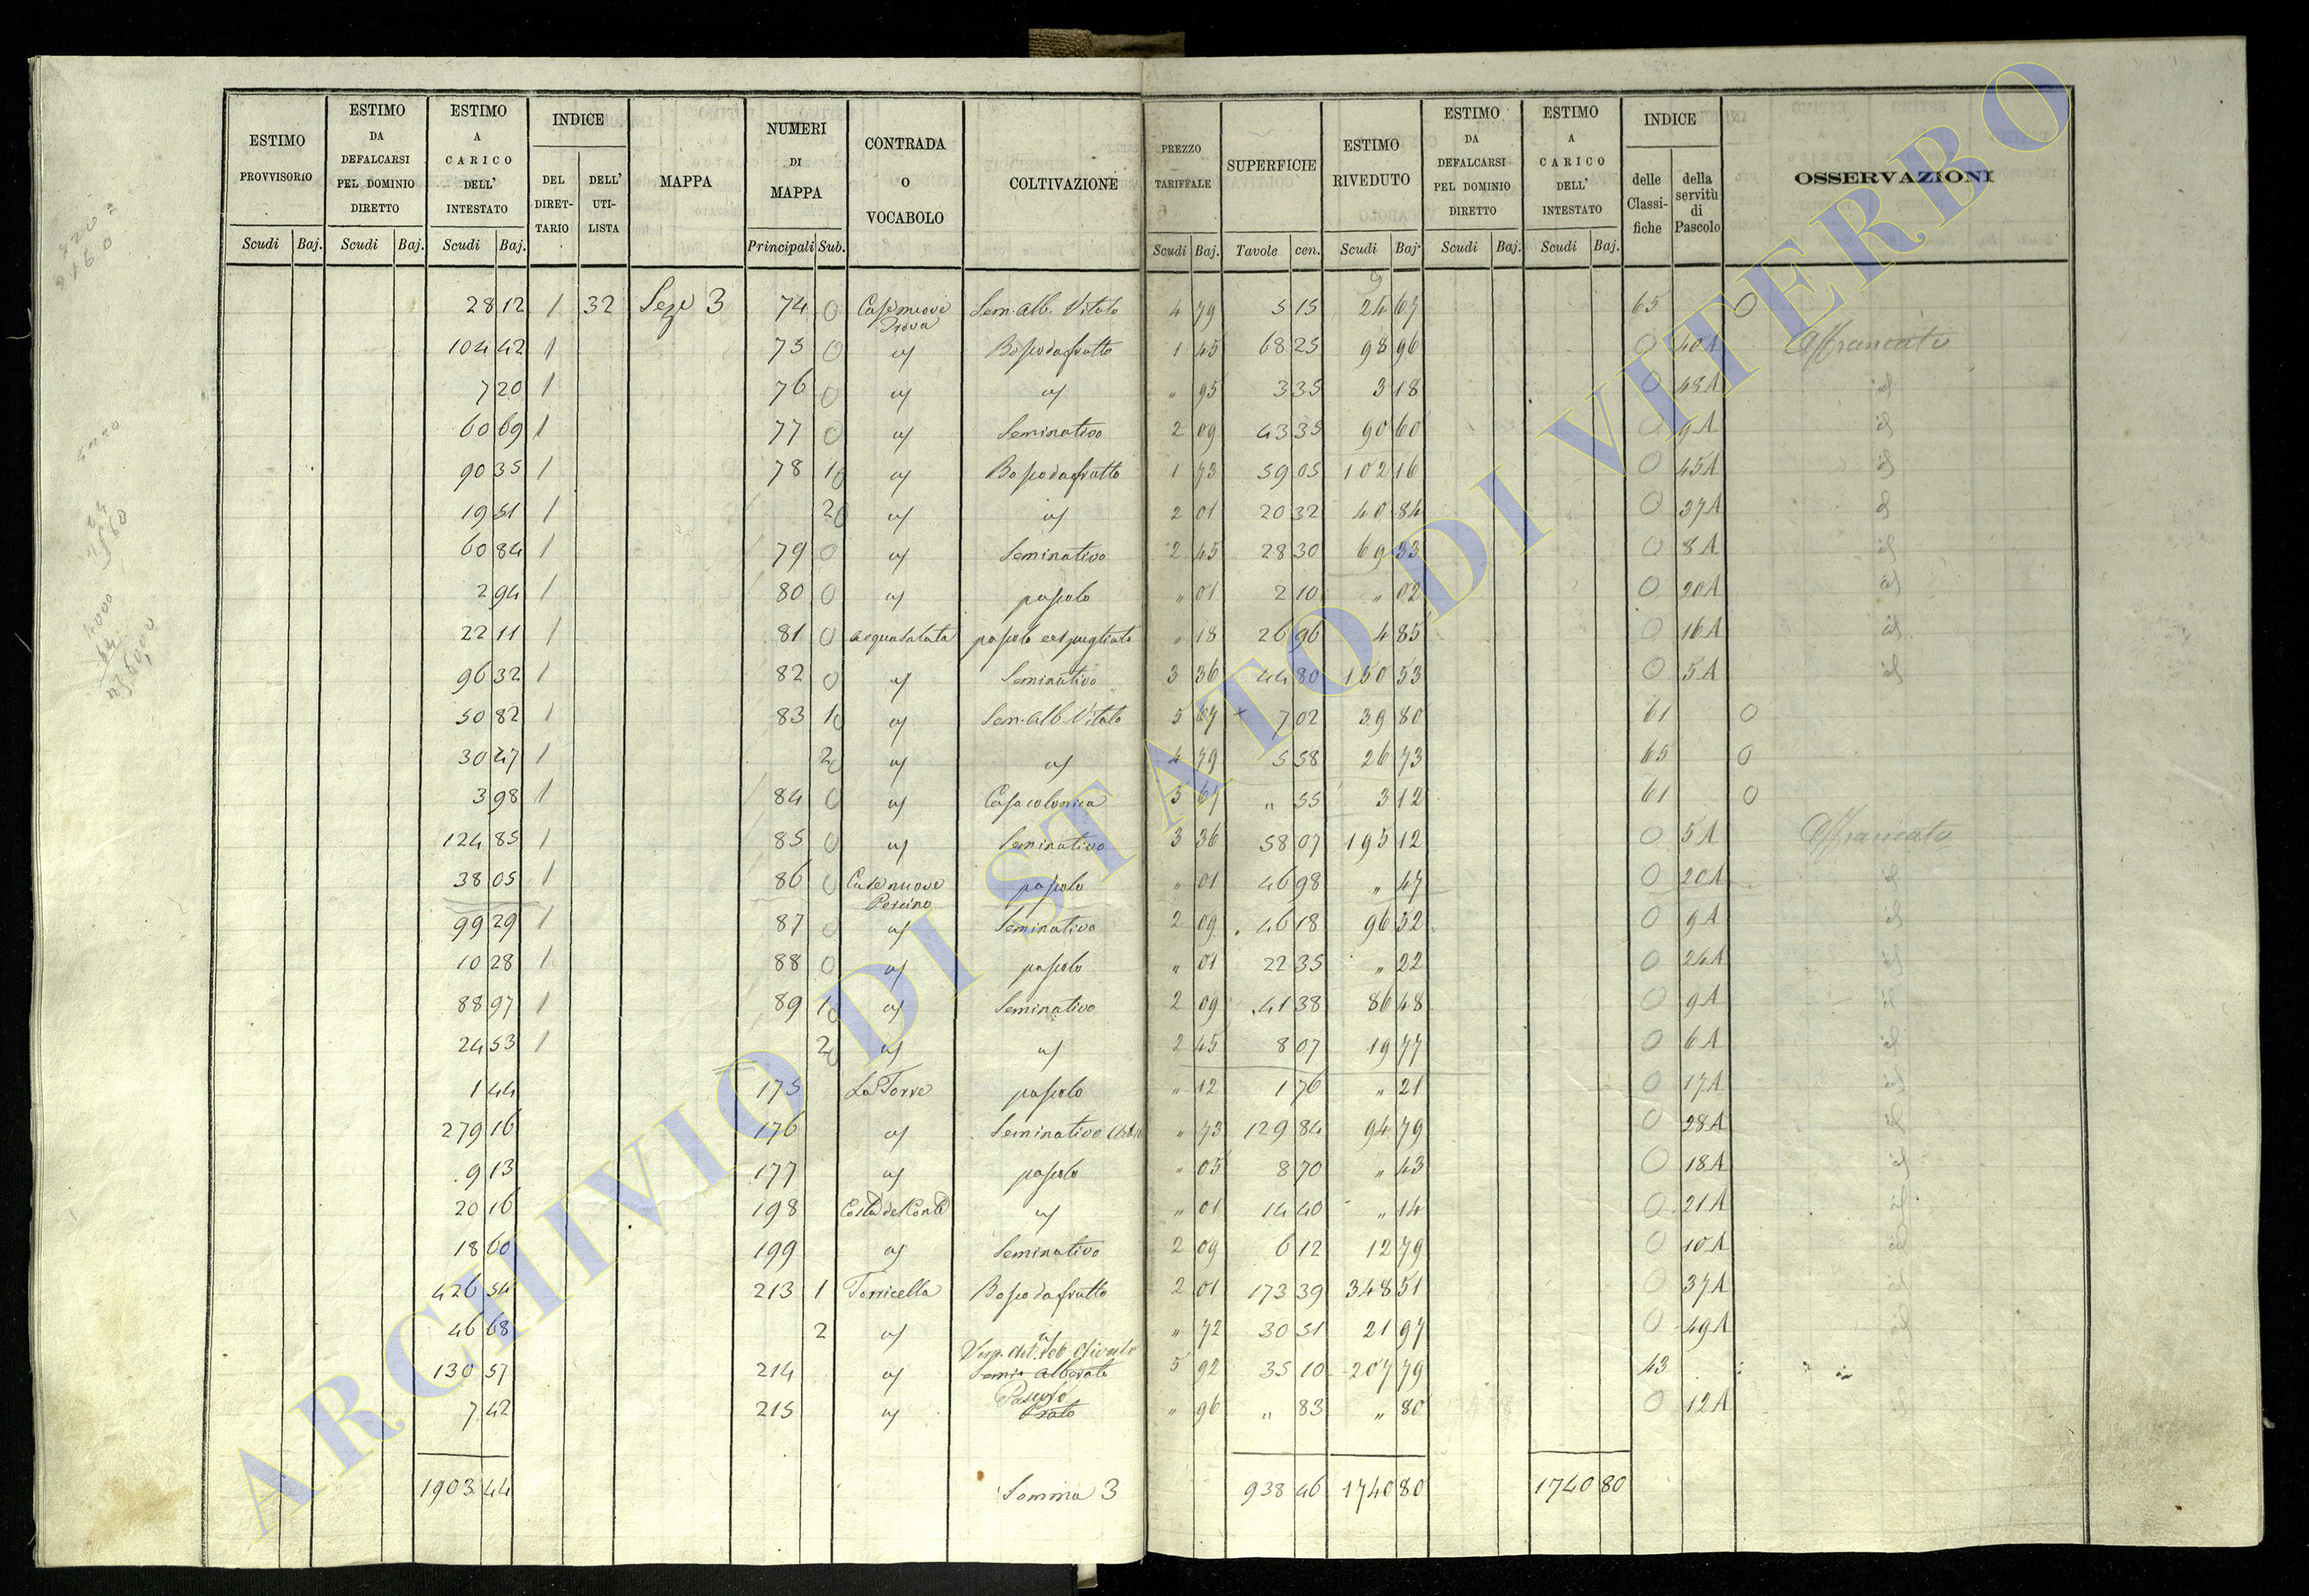 ESTIMO PROVVISORIO Scudi Baj.
ESTIMO DA DEFALCARSI PEL DOMINIO DIRETTO Scudi Baj.
ESTIMO A CARICO DELL' INTESTATO Scudi Baj.
INDICE DEL DIRET-TARIO DELL' UTI-LISTA
MAPPA
NUMERI DI MAPPA Principali Sub.
CONTRADA O VOCABOLO
COLTIVAZIONE
PREZZO TARIFFALE Scudi Baj.
SUPERFICIE Tavole cen.
ESTIMO RIVEDUTO Scudi Baj.
ESTIMO DA DEFALCARSI PEL DOMINIO DIRETTO Scudi Baj.
ESTIMO A CARICO DELL' INTESTATO Scudi Baj.
INDICE delle Classi-fiche della servitù di Pascolo
OSSERVAZIONI
28 12 1 32 Seze 3 74 0 Casenuove Sem. Alb. Vitato 4 79 5 15 24 67 65 0
104 42 1 75 0 " Bosco da frutto 1 45 68 25 98 96 0 40A Affrancato
7 20 1 76 0 " " " 95 3 35 3 18 0 48A id
60 69 1 77 0 " Seminativo 2 09 43 35 90 60 0 9A id
90 35 1 78 1 0 " Bosco da frutto 1 73 59 05 102 16 0 45A id
19 51 1 2 0 " " 2 01 20 32 40 84 0 37A id
60 84 1 79 0 " Seminativo 2 45 28 30 69 33 0 8A id
2 94 1 80 0 " pascolo " 01 2 10 " 02 0 20A id
22 11 1 81 0 acquasalata pascolo cespugliato " 18 26 96 4 85 0 16A id
96 32 1 82 0 " Seminativo 3 36 44 80 150 53 0 5A id
50 82 1 83 1 0 " Sem. Alb Vitato 5 67 7 02 39 80 61 0
30 47 1 2 0 " " 4 79 5 58 26 73 65 0
3 98 1 84 0 " Casa colonica 5 67 " 55 3 12 61 0
124 85 1 85 0 " Seminativo 3 36 58 07 195 12 0 5A Affrancato
38 05 1 86 0 Casenuove Pescino pascolo " 01 46 98 " 47 0 20A id
99 29 1 87 0 " Seminativo 2 09 46 18 96 52 0 9A id
10 28 1 88 0 " pascolo " 01 22 35 " 22 0 24A id
88 97 1 89 1 0 " Seminativo 2 09 41 38 86 48 0 9A id
24 53 1 2 0 " " 2 45 8 07 19 77 0 6A id
1 44 175 La Torre pascolo " 12 1 76 " 21 0 17A id
279 16 176 " Seminativo " 73 129 84 94 79 0 28A id
9 13 177 " pascolo " 05 8 70 " 43 0 18A id
20 16 198 " " 01 14 40 " 14 0 21A id
18 60 199 " Seminativo 2 09 6 12 12 79 0 10A id
426 54 213 1 Torricella Bosco da frutto 2 01 173 39 348 51 0 37A id
46 68 2 " " " 72 30 51 21 97 0 49A id
Olivato
130 57 214 " Semin Alberato 5 92 35 10 207 79 43
Pascolo
7 42 215 " Prato " 96 " 83 " 80 0 12A
1903 44 Somma 3 938 46 1740 80 1740 80
ARCHIVIO DI STATO DI VITERBO